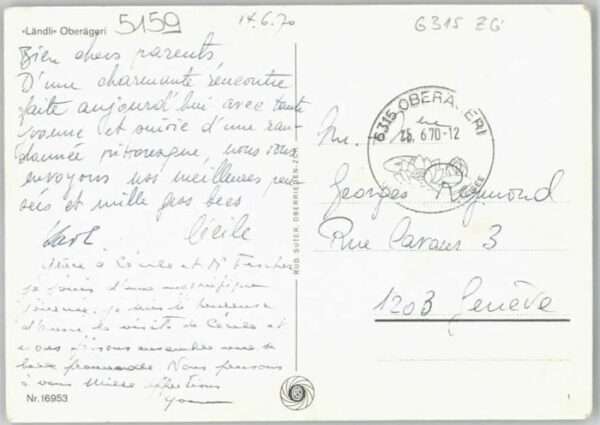 «Ländli» Oberägeri
5159
14.6.70
6315 ZG
Bien chers parents,
D'une charmante rencontre
faite aujourd'hui avec tante
Yvonne et suivie d'une ran-
donnée pittoresque, nous vous
envoyons nos meilleures pen-
sées et mille gros becs
Cécile
Grâce à Cécile et Mr Fischer
je jouis d'une magnifique
journée, je suis si heureuse
d'avoir la visite de Cécile et
nous faisons ensemble une
belle promenade. Nous pensons
à vous Mille affections
Nr. 16953
RUD. SUTER, OBERRIEDEN-ZCH.
6315 OBERÄGERI
15. 6.70-12
Georges Reymond
Rue Cavour 3
1203 Genève